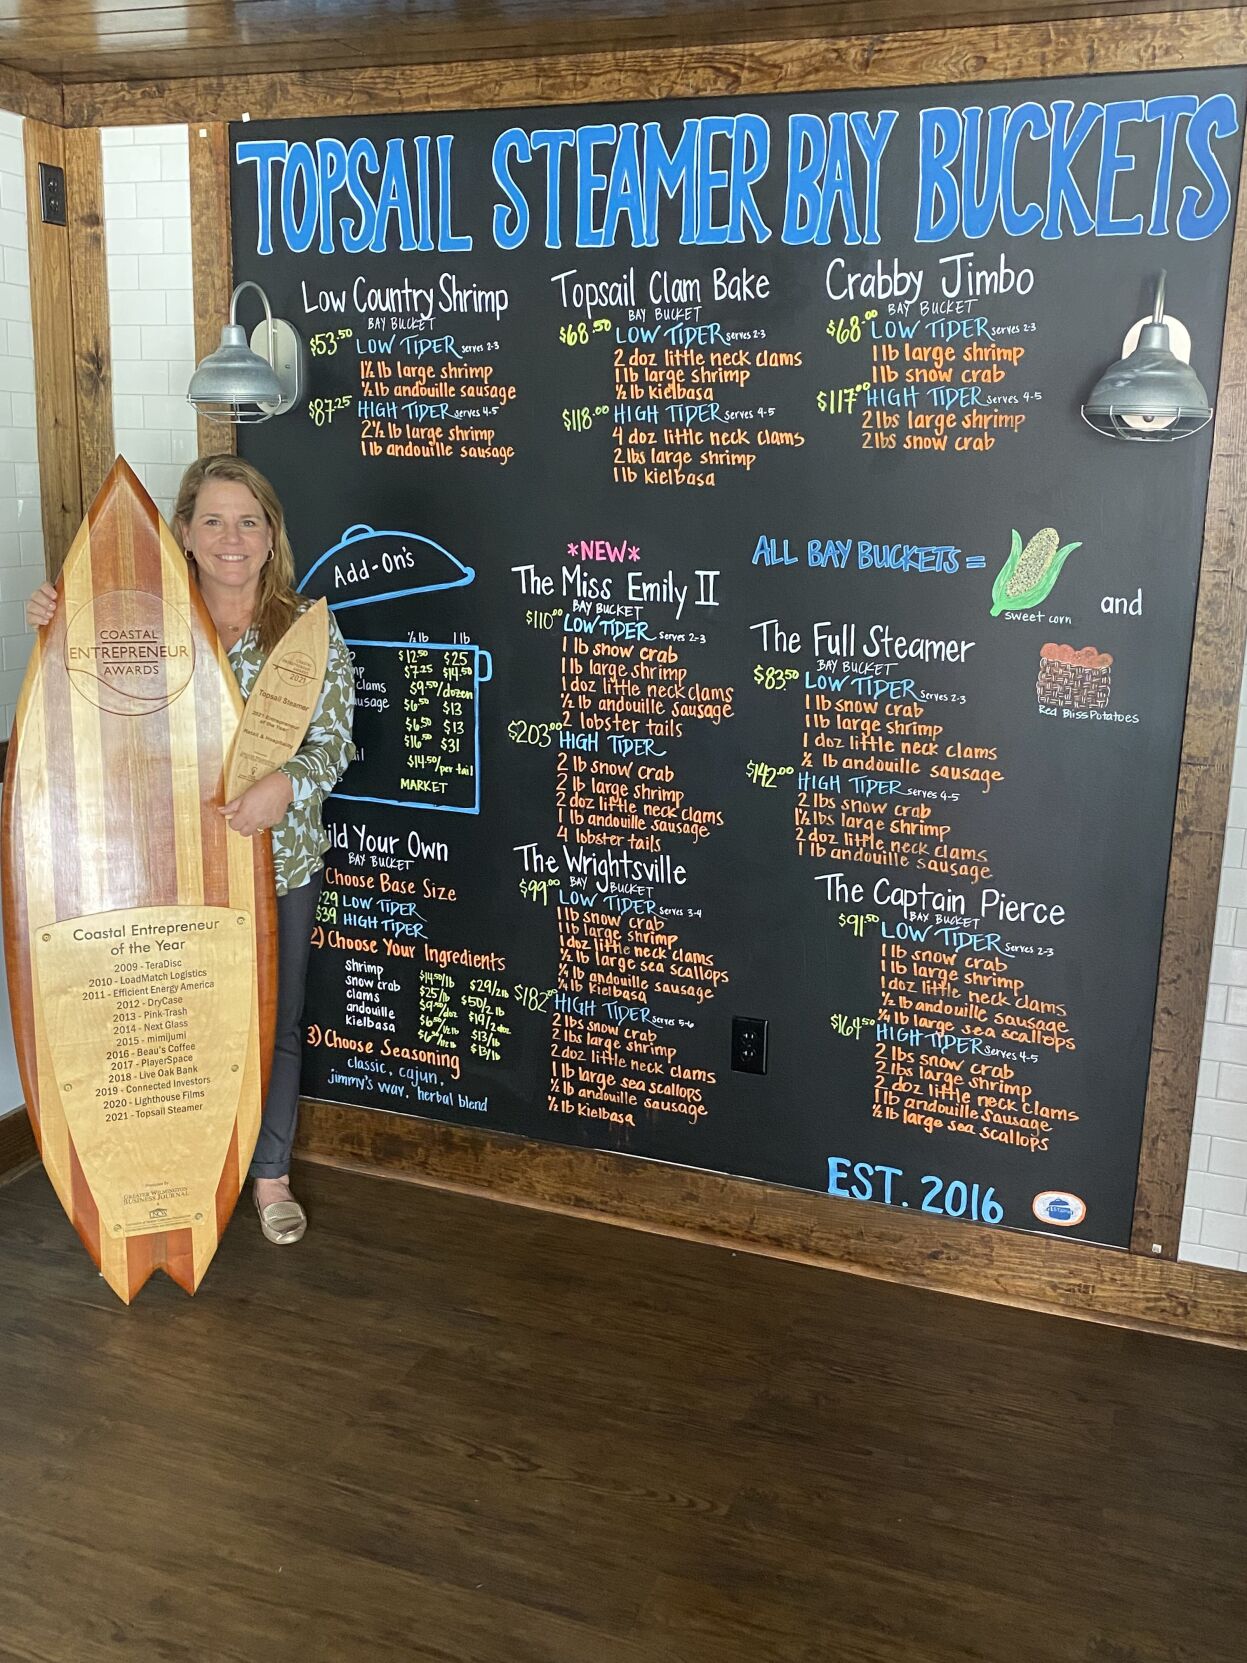 TOPSAIL STEAMER BAY BUCKETS
Low Country Shrimp
BAY BUCKET
$53.50 LOW TIDER serves 2-3
1½ lb large shrimp
½ lb andouille sausage
$87.25 HIGH TIDER serves 4-5
2½ lb large shrimp
1 lb andouille sausage
Topsail Clam Bake
BAY BUCKET
$68.50 LOW TIDER serves 2-3
2 doz little neck clams
1 lb large shrimp
½ lb kielbasa
$118.00 HIGH TIDER serves 4-5
4 doz little neck clams
2 lbs large shrimp
1 lb kielbasa
Crabby Jimbo
BAY BUCKET
$68.00 LOW TIDER serves 2-3
1 lb large shrimp
1 lb snow crab
$117.00 HIGH TIDER serves 4-5
2 lbs large shrimp
2 lbs snow crab
Add-On's
½ lb 1 lb
$12.50 $25
$7.25 $14.50
clams $9.50/dozen
$6.50 $13
$6.50 $13
$16.50 $31
$14.50/per tail
MARKET
*NEW*
The Miss Emily II
BAY BUCKET
$110.00 LOW TIDER serves 2-3
1 lb snow crab
1 lb large shrimp
1 doz little neck clams
½ lb andouille sausage
2 lobster tails
$203.00 HIGH TIDER
2 lb snow crab
2 lb large shrimp
2 doz little neck clams
1 lb andouille sausage
4 lobster tails
ALL BAY BUCKETS =
sweet corn
and
Red Bliss Potatoes
The Full Steamer
BAY BUCKET
$83.50 LOW TIDER serves 2-3
1 lb snow crab
1 lb large shrimp
1 doz little neck clams
½ lb andouille sausage
$142.00 HIGH TIDER serves 4-5
2 lbs snow crab
1½ lbs large shrimp
2 doz little neck clams
1 lb andouille sausage
Your Own
BAY BUCKET
Choose Base Size
LOW TIDER
$39 HIGH TIDER
2) Choose Your Ingredients
shrimp $14.50/lb $29/2 lb
snow crab $25/lb $50/2 lb
clams $9.50/doz $19/2 doz
andouille $6.50/½ lb $13/lb
kielbasa $6.50/½ lb $13/lb
3) Choose Seasoning
classic, cajun,
jimmy's way, herbal blend
The Wrightsville
BAY BUCKET
$99.00 LOW TIDER serves 3-4
1 lb snow crab
1 lb large shrimp
1 doz little neck clams
½ lb large sea scallops
¼ lb andouille sausage
¼ lb kielbasa
$182.00 HIGH TIDER serves 5-6
2 lbs snow crab
2 lbs large shrimp
2 doz little neck clams
1 lb large sea scallops
½ lb andouille sausage
½ lb kielbasa
The Captain Pierce
BAY BUCKET
$91.50 LOW TIDER serves 2-3
1 lb snow crab
1 lb large shrimp
1 doz little neck clams
½ lb andouille sausage
¼ lb large sea scallops
$164.50 HIGH TIDER serves 4-5
2 lbs snow crab
2 lbs large shrimp
2 doz little neck clams
1 lb andouille sausage
½ lb large sea scallops
EST. 2016
COASTAL
ENTREPRENEUR
AWARDS
2021
Topsail Steamer
2021 Entrepreneur
of the Year
Retail & Hospitality
Coastal Entrepreneur
of the Year
2009 - TeraDisc
2010 - LoadMatch Logistics
2011 - Efficient Energy America
2012 - DryCase
2013 - Pink-Trash
2014 - Next Glass
2015 - mimijumi
2016 - Beau's Coffee
2017 - PlayerSpace
2018 - Live Oak Bank
2019 - Connected Investors
2020 - Lighthouse Films
2021 - Topsail Steamer
GREATER WILMINGTON
BUSINESS JOURNAL
UNCW